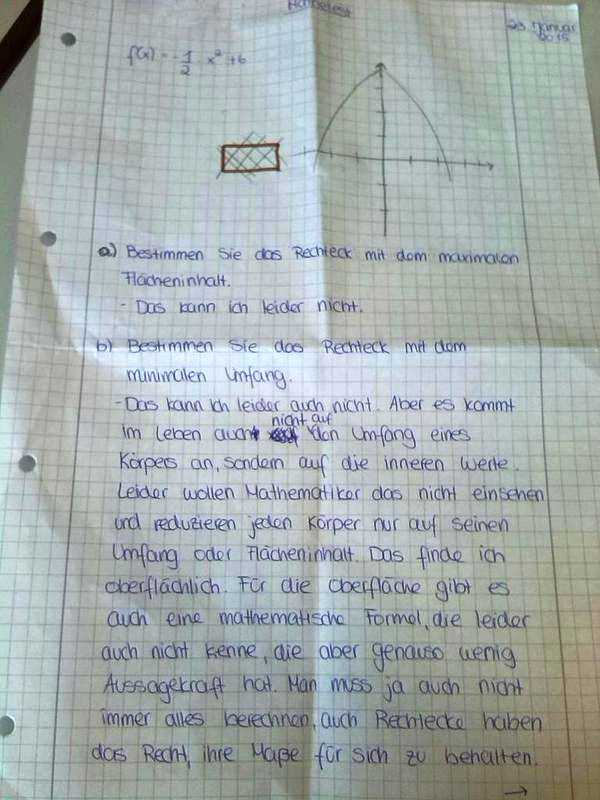 23. Januar
2015
f(x) = -1/2 x² + 6
a) Bestimmen Sie das Rechteck mit dem maximalen
Flächeninhalt.
- Das kann ich leider nicht.
b) Bestimmen Sie das Rechteck mit dem
minimalen Umfang.
- Das kann ich leider auch nicht. Aber es kommt
im Leben auch nicht auf den Umfang eines
Körpers an, sondern auf die inneren Werte.
Leider wollen Mathematiker das nicht einsehen
und reduzieren jeden Körper nur auf seinen
Umfang oder Flächeninhalt. Das finde ich
oberflächlich. Für die Oberfläche gibt es
auch eine mathematische Formel, die leider
auch nicht kenne, die aber genauso wenig
Aussagekraft hat. Man muss ja auch nicht
immer alles berechnen, auch Rechtecke haben
das Recht, ihre Maße für sich zu behalten.